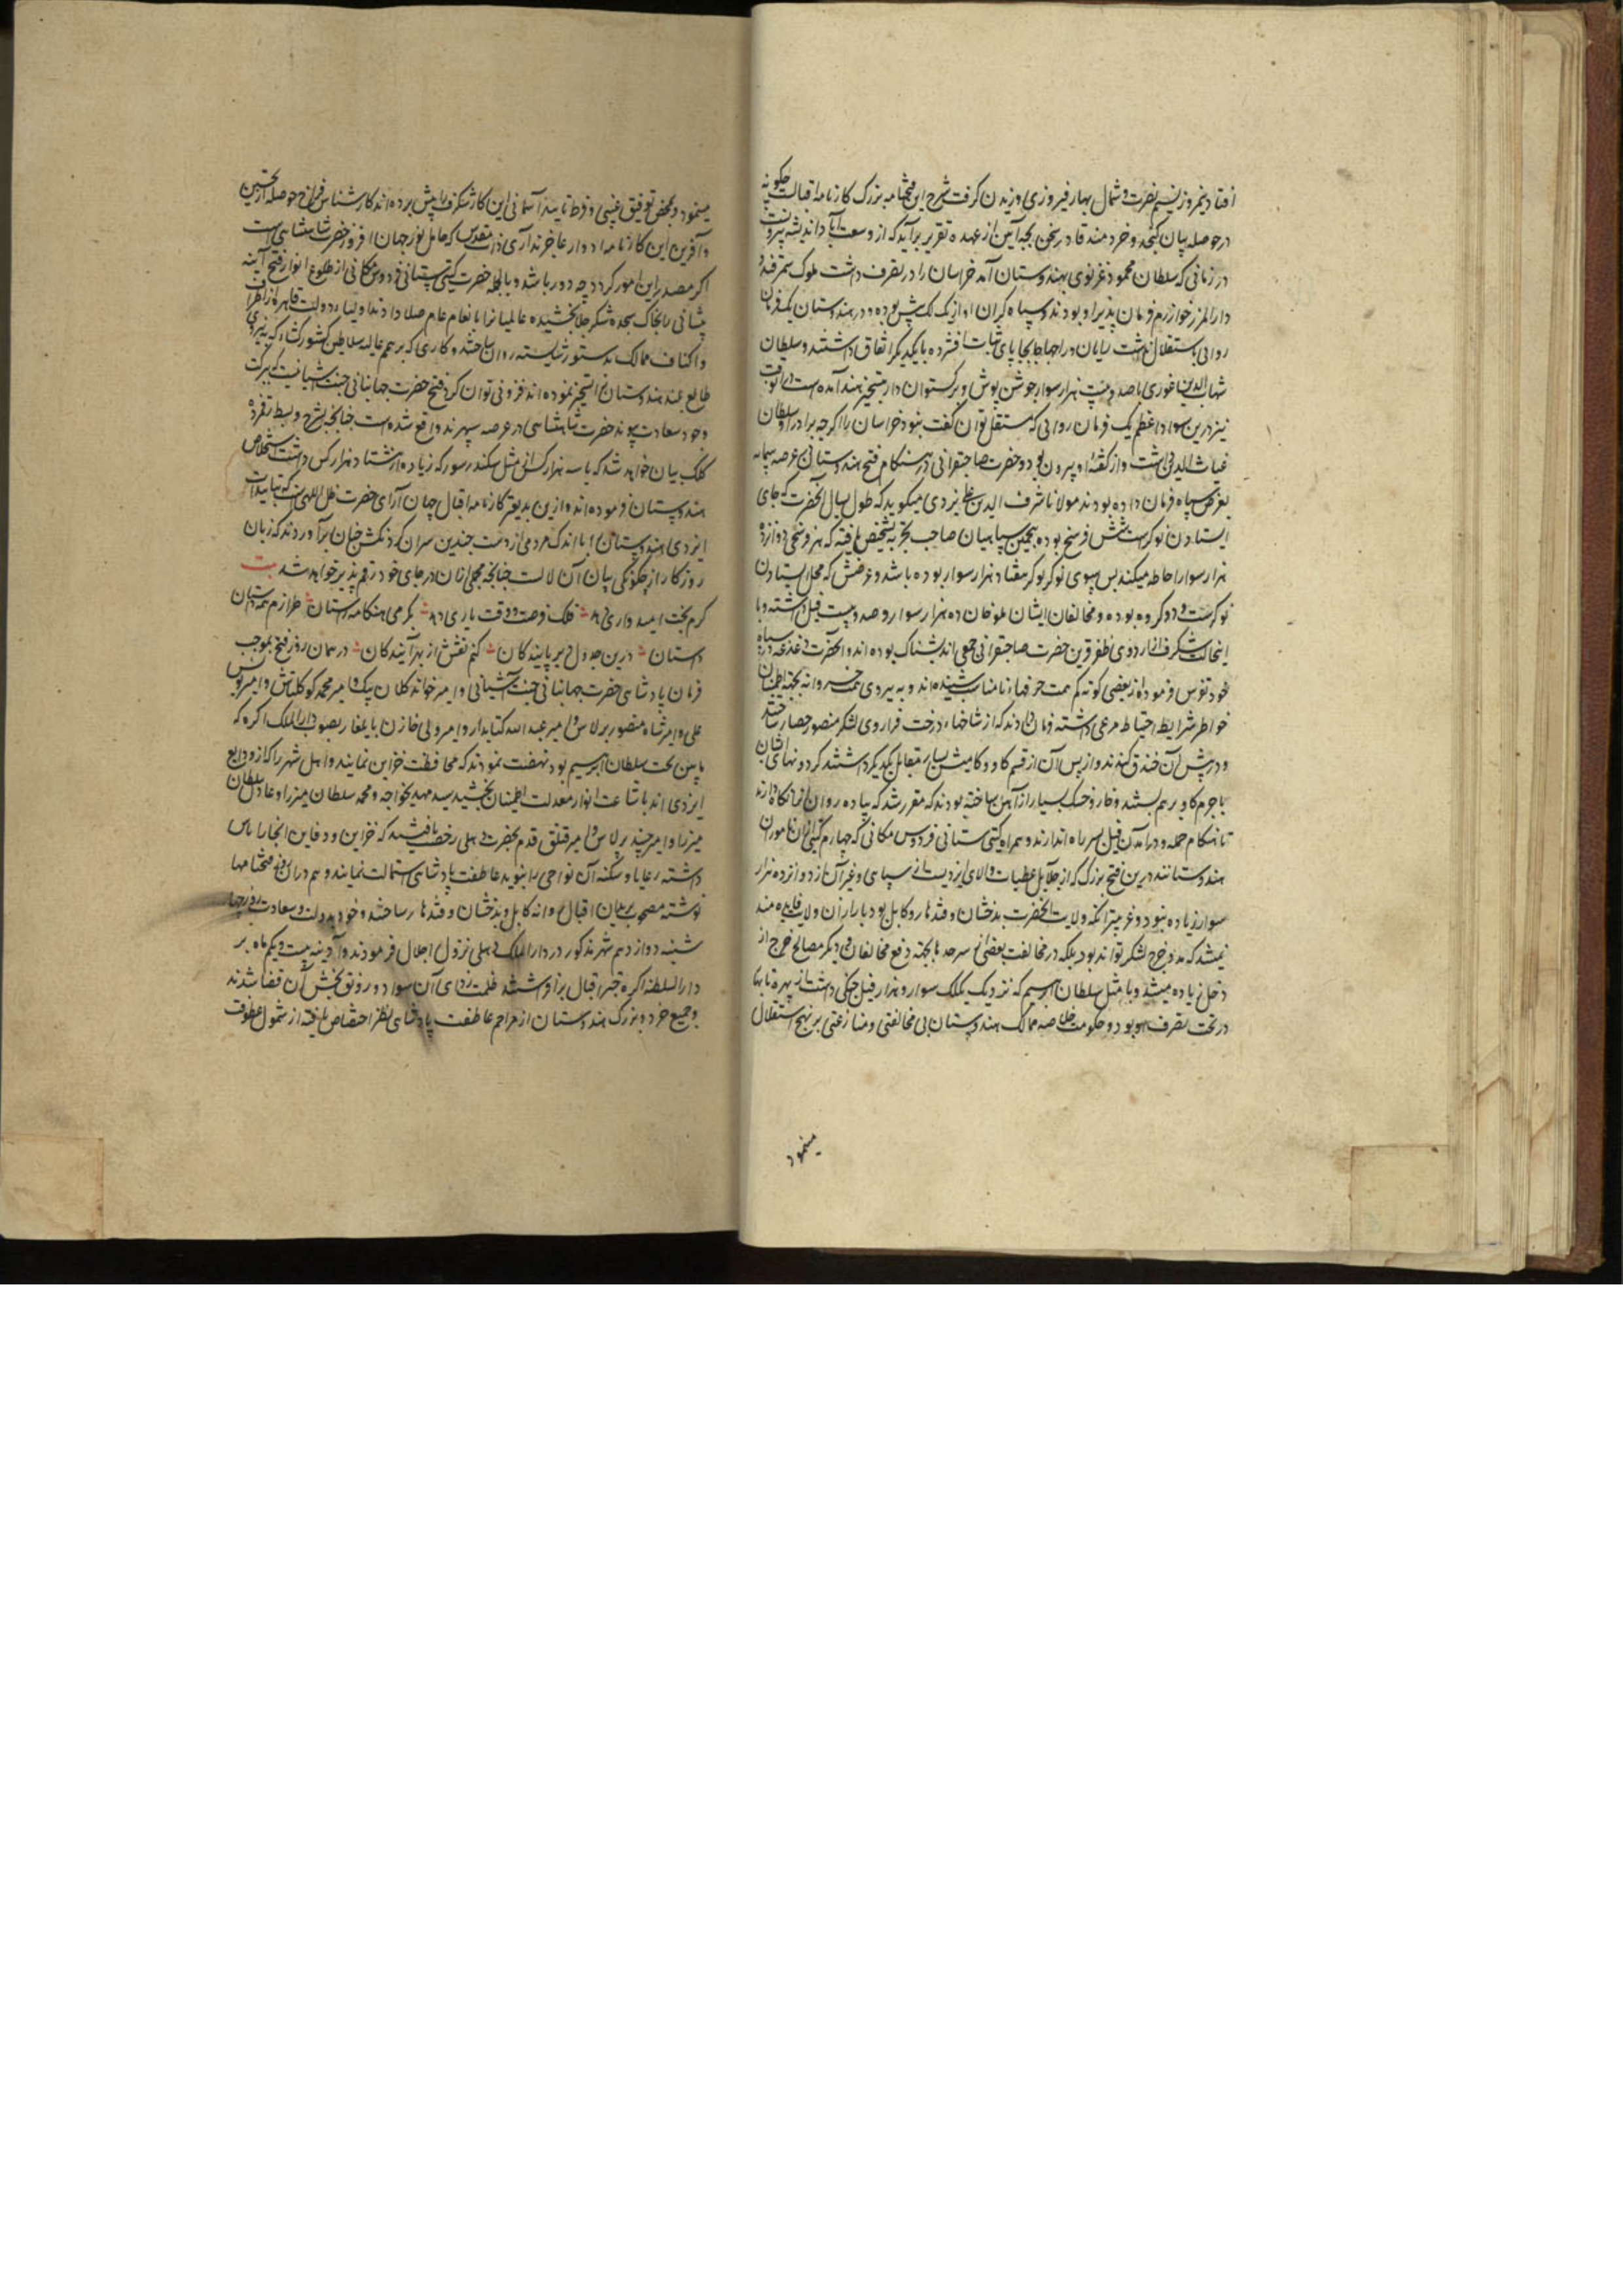 افتاد و نیمروز نسیم نصرت و شمال بهار فیروزی وزیدن گرفت شرح این فتحنامه بزرگ کارنامه اقبالست چگونه
در حوصله بیان گنجد و خردمند قادر سخن بچه آیین از عهده تقریر برآید که از وسعت آباد اندیشه بیرونست
در زمانی که سلطان محمود غزنوی بهندوستان آمد خراسان را در تصرف داشت ملوک سمرقند و
دارالمرز خوارزم فرمان پذیر او بودند و سپاه گران او از یک لک بیش بوده و در هندوستان یک فرمان
روایی باستقلال نداشت رایان و راجها جابجا پای ثبات افشرده با یکدیگر اتفاق داشتند و سلطان
شهاب الدین غوری با صد و بیست هزار سوار جوشن پوش و برگستوان دار بتسخیر هند آمده است در آنوقت
نیز درین سواد اعظم یک فرمان روایی که مستقل توان گفت نبود خراسان را اگرچه برادر او سلطان
غیاث الدین داشت و از گفتهٔ او بیرون نبود و حضرت صاحبقرانی در هنگام فتح هندوستان عرصه سمانه
بعرض سپاه فرمان داده بودند مولانا شرف الدین علی یزدی میگوید که طول یسال آنحضرت که جای
ایستادن نوکرست شش فرسخ بوده و بتخمین سپاهیان صاحب تجربه تشخیص یافته که هر فرسخی دوازده
هزار سوار احاطه میکند پس سوای نوکر نوکر هفتاد هزار سوار بوده باشد و عرضش که محل ایستادن
نوکرست دو کروه بوده و مخالفان ایشان ملوخان ده هزار سوار و صد و بیست فیل داشته و با
اینحالت شگرف از اردوی ظفر قرین حضرت صاحبقرانی جمعی اندیشناک بوده‌اند و آنحضرت دغدغه در سپاه
خود تفرس فرموده از بعضی کوته هم همت حرفهاء نامناسب شنیده‌اند و به پیروی همت خسروانه بجهة اطمینان
خواطر شرایط احتیاط مرعی داشته فرمان دادند که از شاخهاء درخت فراروی لشکر منصور حصار ساختند
و در پیش آن خندق کندند و از پس آن از قسم گاو و گاومیش بسیار متقابل یکدیگر داشتند گردونهای ایشان
با چرم گاو بر هم بستند و خار و خسک بسیار از آهن ساخته بودند که مقرر شد که پیاده روان آنرا نگاه دارند
تا هنگام حمله و درآمدن فیل بسر راه اندازند و همراه گیتی ستانی فردوس مکانی که چهارم گیتی ستان ناموران
هندوستانند درین فتح بزرگ که از جلایل عطیات والای ایزدیست از سپاهی و غیر آن از دوازده هزار
سوار زیاده نبود و غریبتر آنکه ولایت آنحضرت بدخشان و قندهار و کابل بود بارا زان ولایت فایده مند
نمیشد که مدد خرج لشکر تواند بود بلکه در محافظت بعضی از سرحدها بجهة دفع مخالفان و دیگر مصالح خرج از
دخل زیاده میشد و با مثل سلطان ابراهیم که نزدیک یک لک سوار و هزار فیل جنگی داشت از بهره تا بهار
در تحت تصرف او بود و حکومت خلاصه ممالک هندوستان بی مخالفتی و منازعتی بر نهج استقلال
مینمود
مینمود و بمحض توفیق غیبی و فرط تایید آسمانی این کار شگرف را پیش برده‌اند کارشناس فراخ حوصله از تحسین
و آفرین این کارنامهٔ ادوار عاجزند آری ذات مقدس که حامل نور جهان افروز حضرت شاهنشاهی است
اگر مصدر این امور گردد چه دور باشد و بالجمله حضرت گیتی ستانی فردوس مکانی از طلوع انوار فتح آینه
پیشانی را بخاک سجده شکر جلا بخشیده عالمیانرا بانعام عام صلا دادند و اولیاء دولت قاهره را باطراف
و اکناف ممالک بدستور شایسته روان ساختند و کاری که بر همم عالیه سلاطین کشور گشا که بنیروی
طالع بلند هندوستانرا تسخیر نموده‌اند فزونی توان کرد فتح حضرت جهانبانی جنت آشیانیست که ببرکت
وجود سعادت پیوند حضرت شاهنشاهی در عرصه سهرند واقع شده است چنانچه بشرح و بسط زده
کلک بیان خواهد شد که با سه هزار کس از مثل سکندر سور که زیاده از هشتاد هزار کس داشت استخلاص
هندوستان فرموده‌اند و ازین بدیعتر کارنامه اقبال جهان آرای حضرت ظل اللهی است که بتاییدات
ایزدی هندوستان را با اندک مردمی از دست چندین سران گردنکش چنان برآوردند که زبان
روزگار از چگونگی بیان آن لالست چنانچه مجملی از ان در جای خود رقم پذیر خواهد شد بیت
گرم بخت امیدواری دهد فلک فرصت و وقت یاری دهد بگرمی هنگامه دوستان طرازم همه داستان
داستان درین جدول دیر پایندگان کنم نقشی از بهر آیندگان در همان روز فتح بموجب
فرمان پادشاهی حضرت جهانبانی جنت آشیانی و امیر خواجه کلان بیگ و امیر محمد کوکلتاش و امیر یونس
علی و امیر شاه منصور برلاس و امیر عبدالله کتابدار و امیر ولی خازن بایلغار بصوب دارالملک آگره که
پایین تخت سلطان ابراهیم بود نهضت نمودند که محافظت خزاین نمایند و اهل شهر را که از ودایع
ایزدی اند باشاعت انوار معدلت اطمینان بخشید سید مهدی خواجه و محمد سلطان میرزا و عادل سلطان
میرزا و امیر جنید برلاس و امیر قتلق قدم بحضرت دهلی رخصت یافتند که خزاین و دفاین انجارا پاس
داشته رعایا و سکنه آن نواحی را بنوید عاطفت پادشاهی استمالت نمایند و هم دران روز فتحنامها
نوشته مصحوب بریدان اقبال روانه کابل و بدخشان و قندهار ساختند و خود بدولت و سعادت روز چهار
شنبه دوازدهم شهر مذکور در دارالملک دهلی نزول اجلال فرمودند و آدینه بیست و یکم ماه بر
دارالسلطنه آگره چتر اقبال برافراشتند ظلمت زدای آن سواد و رونق بخش آن فضا شدند
و جمیع خرد و بزرگ هندوستان از مراحم عاطفت پادشاهی بنظر اختصاص یافته از شمول عطوفت